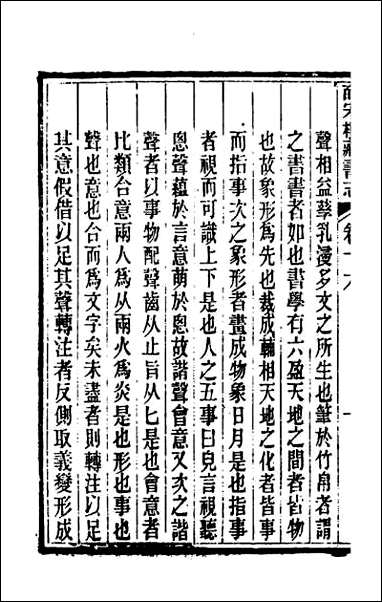 皕宋樓藏書志 卷十六 一
聲相益孳乳漫多文之所生也筆於竹帛者謂
之書書者如也書學有六盈天地之間者皆物
也故象形爲先也裁成輔相天地之化者皆事
而指事次之象形者畫成物象日月是也指事
者視而可識上下是也人之五事曰皃言視聽
恖聲蘊於言意萌於恖故諧聲會意又次之諧
聲者以事物配聲齒从止旨从匕是也會意者
比類合意兩人爲从兩火爲炎是也形也事也
聲也意也合而爲文字矣未盡者則轉注以足
其意假借以足其聲轉注者反側取義變形成